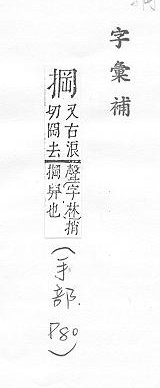 字彙補
掆
又右浪
切岡去
聲字林捎
掆舁也
(手部 P80)